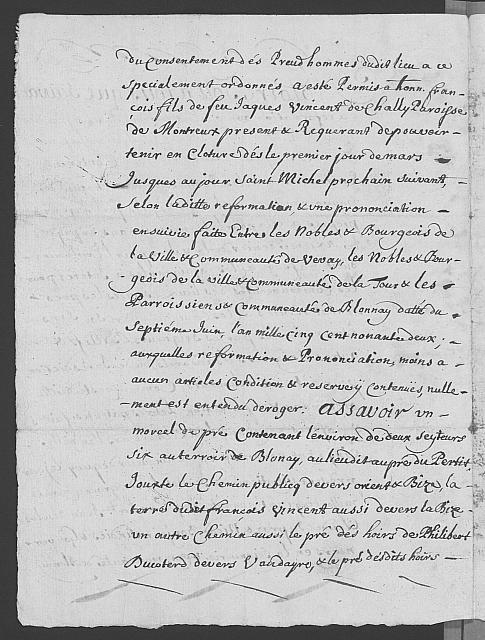 du Consentement dés Preudhommes dudit lieu a ce
specialement ordonnés a esté Permis a honn. fran
çois fils de feu Jaques Vincent de Chally Paroisse
de Montreux present & Requerant de pouvoir -
tenir en Cloture dés le premier jour de mars -
Jusques au jour Saint Michel prochain suivant, -
Selon laditte reformation, & une prononciation -
ensuivie faite Entre les Nobles & Bourgeois de
la Ville & Communeauté de Vevay, les Nobles & Bour-
geois de la ville & Communeauté de la Tour & les -
Parroissiens & Communeauté de Blonnay datté du -
Septiéme Juin, l'an mille cinq cent nonante deux, -
auxquelles reformation & Prononciation, moins a -
aucun articles Condition & reserves y contenües, nulle-
ment est entendu deroger: assavoir un -
morcel de pré Contenant l'environ de deux seyteurs
six au terroir de Blonay, au lieu dit au pré du Pertit,
Jouxte le Chemin publicq devers orient & Bize, la -
terre dudit françois Vincent aussi devers la Bize -
un autre Chemin aussi le pré dés hoirs de Philibert
Ducoterd devers Vaudayre, & le pré désdits hoirs -